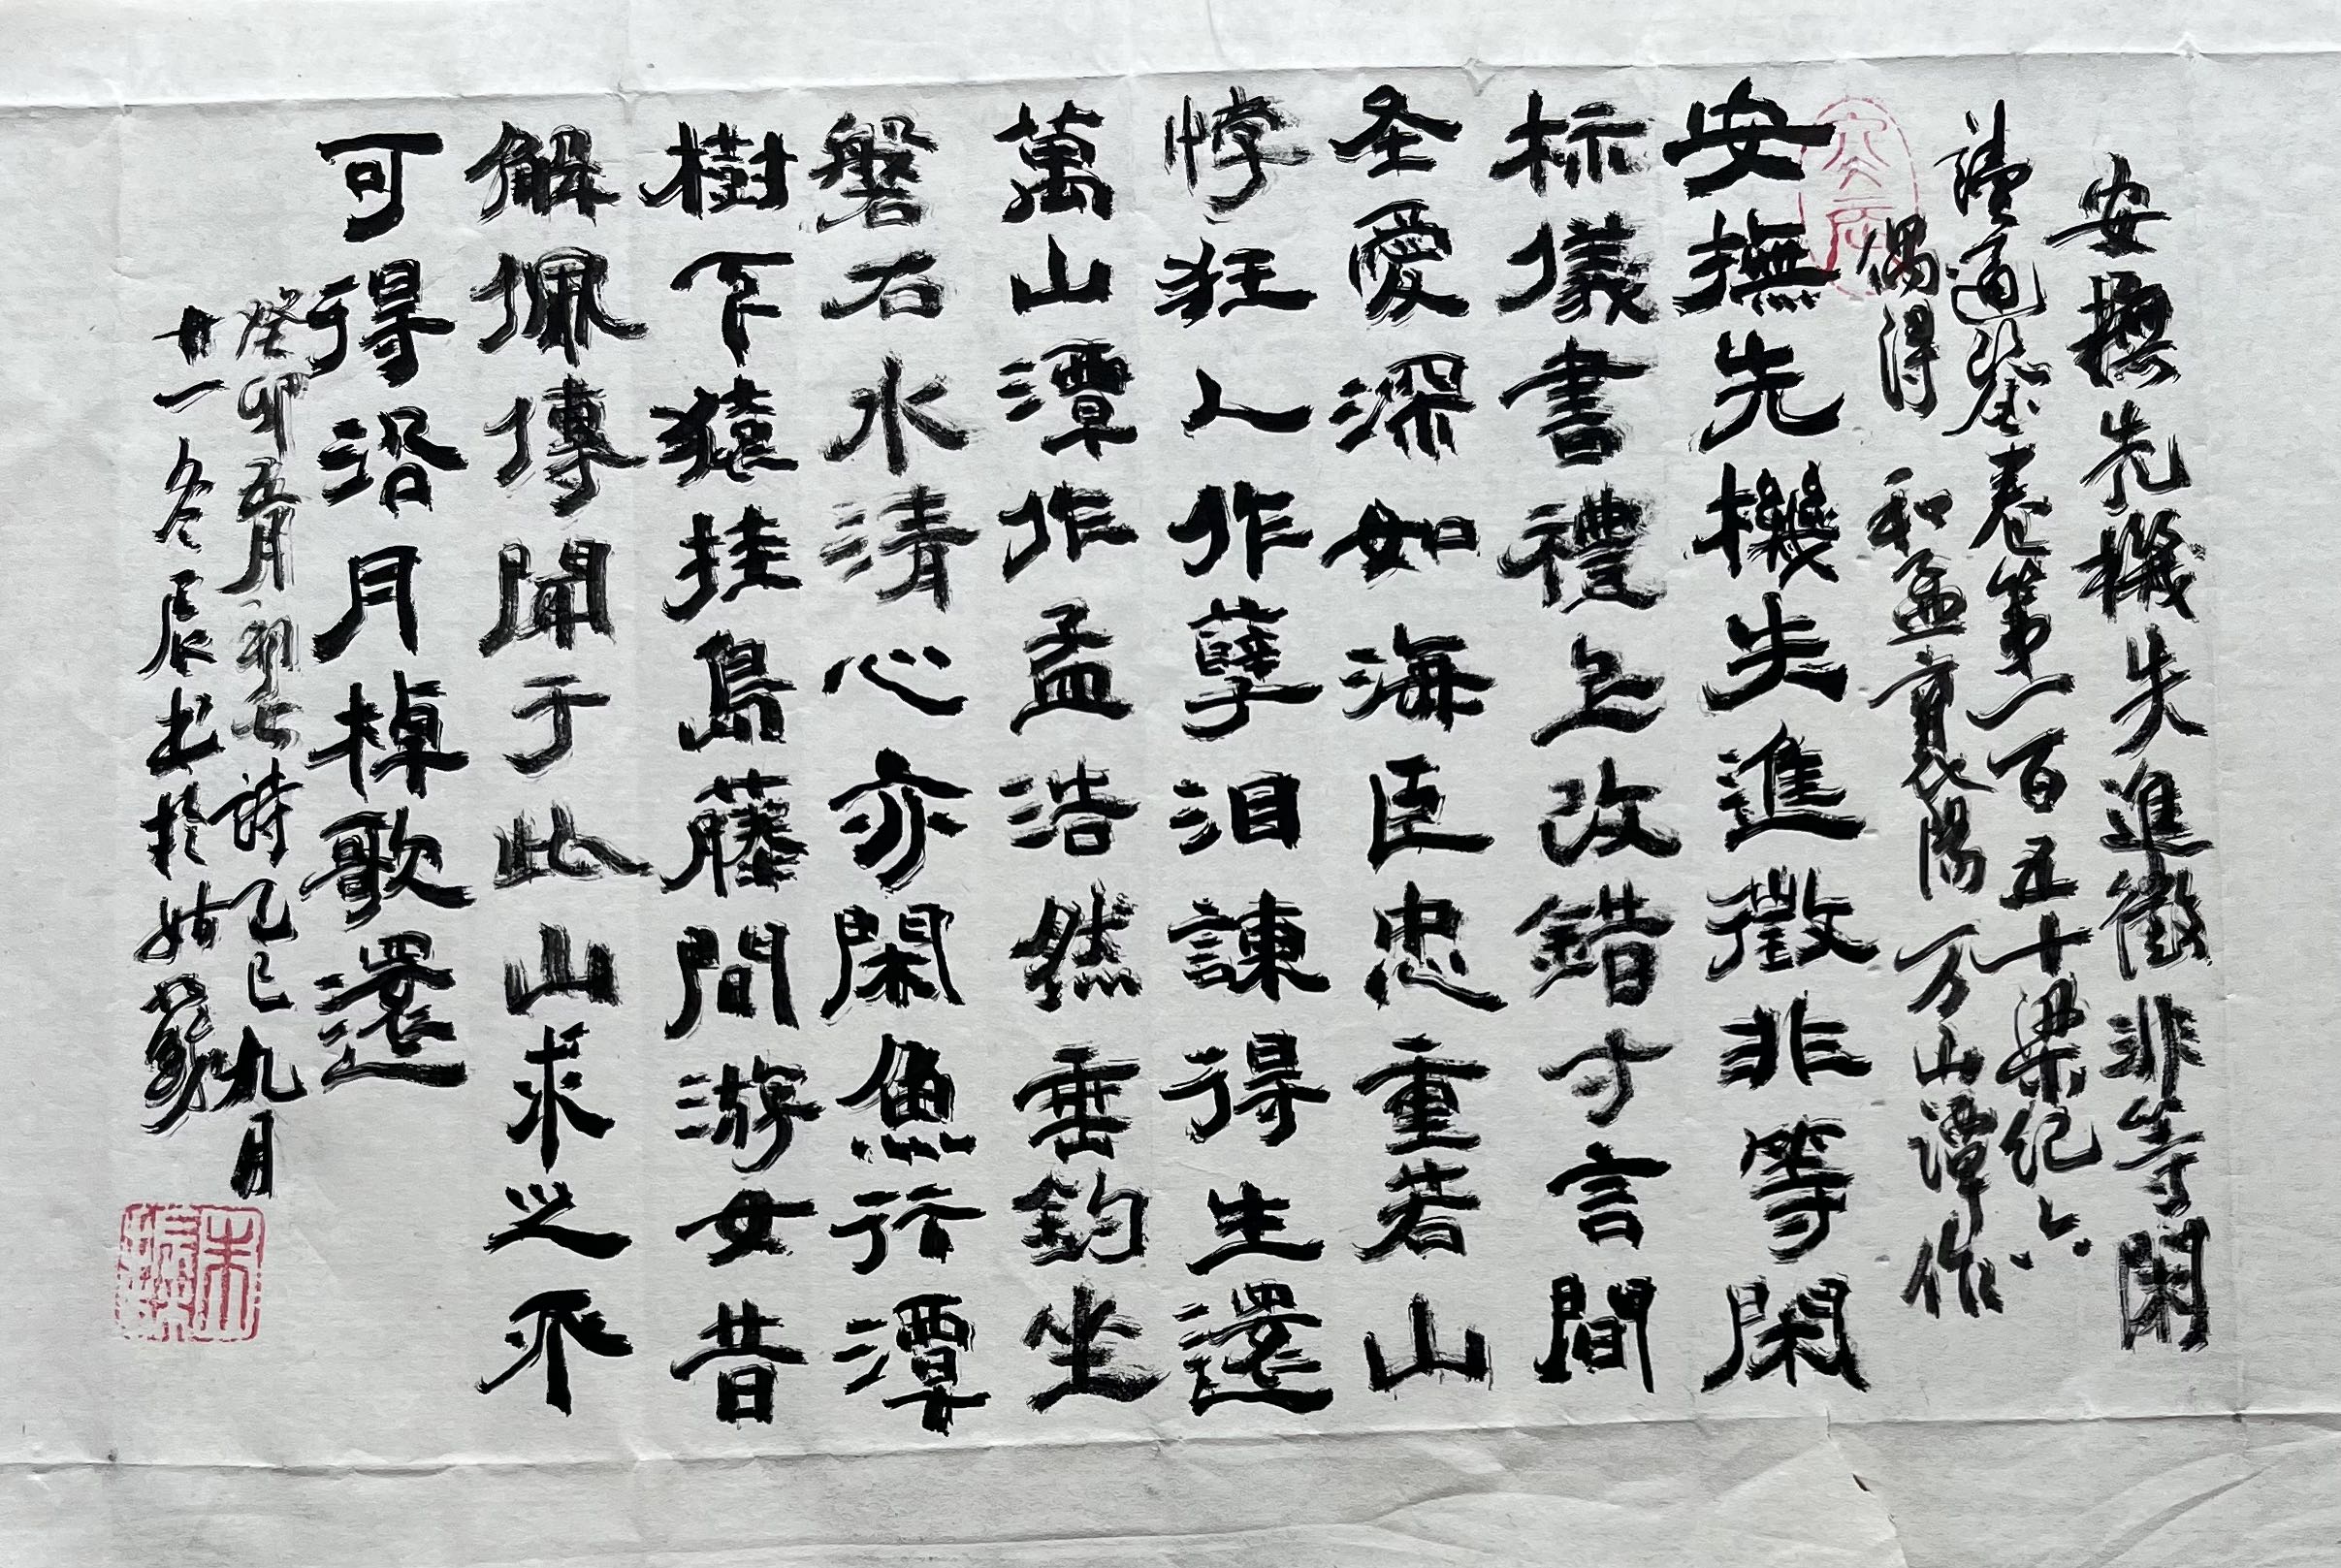 安撫先機失進徵非等閑
讀通鑒卷第一百五十梁纪六
偶得 和孟襄陽万山潭作
安撫先機失進徵非等閑
标儀書禮上改錯寸言間
圣愛深如海臣忠重若山
悖狂人作孽泪諫得生還
萬山潭作孟浩然垂釣坐
磐石水清心亦閑魚行潭
樹下猿挂島藤間游女昔
解佩傳聞于此山求之不
可得沿月棹歌還
癸卯五月初七詩乙巳九月
廿一冬辰书於姑蘇